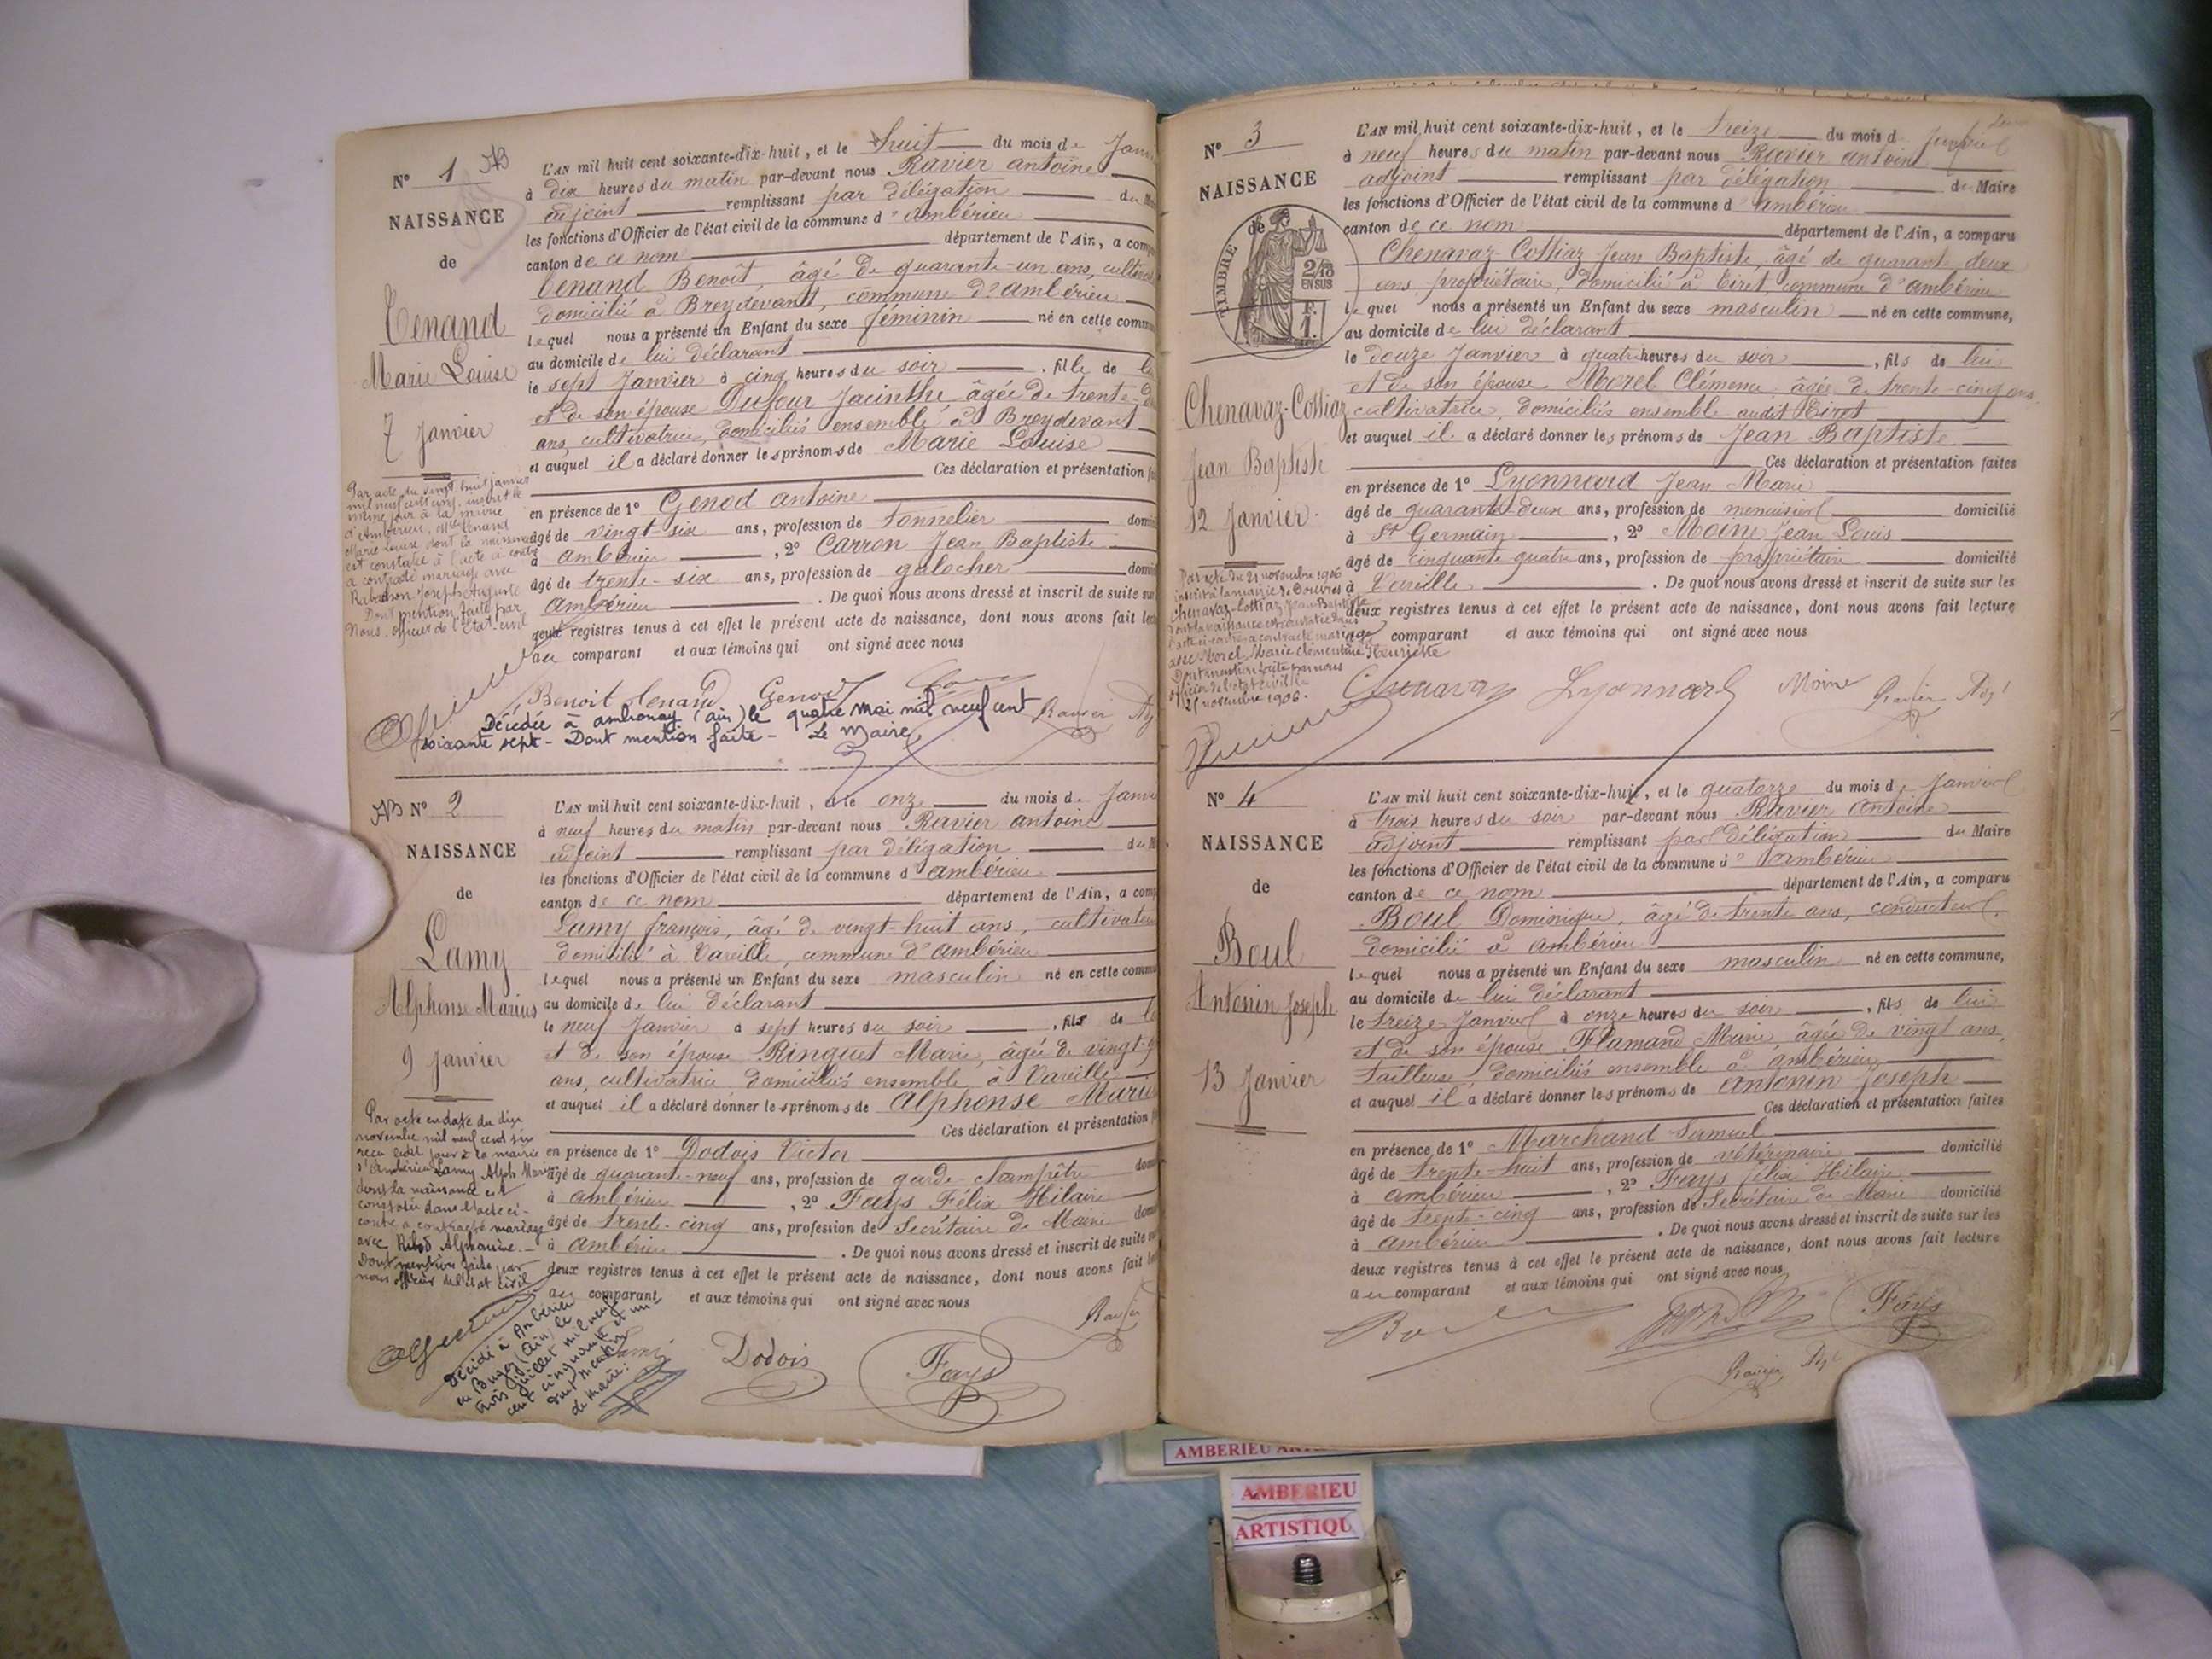 N° 1
NAISSANCE
de
Tenand
Marie Louise
7 Janvier
L'AN mil huit cent soixante-dix-huit, et le huit du mois de Janv
à dix heures du matin par-devant nous Ravier antoine
adjoint remplissant par délégation du M
les fonctions d'Officier de l'état civil de la commune d'ambérieu
canton de ce nom département de l'Ain, a comp
Tenand Benoît, âgé de quarante-un ans, cultiva
domicilié à Breydevant, commune d'ambérieu
lequel nous a présenté un Enfant du sexe féminin né en cette comm
au domicile de lui déclarant
le sept Janvier à cinq heures du soir, fille de l
et de son épouse Dufour Jacinthe âgée de trente-d
ans, cultivatrice, domiciliés ensemble à Breydevant
et auquel il a déclaré donner les prénoms de Marie Louise
Ces déclaration et présentation f
en présence de 1° Genod antoine
âgé de vingt-six ans, profession de tonnelier domi
à ambérieu, 2° Carron Jean Baptiste
âgé de trente-six ans, profession de galocher domi
ambérieu. De quoi nous avons dressé et inscrit de suite su
deux registres tenus à cet effet le présent acte de naissance, dont nous avons fait lec
au comparant et aux témoins qui ont signé avec nous
Par acte du vingt huit janvier
mil neuf cent cinq, inscrit le
même jour à la mairie
d'Ambérieu, Tenand
Marie Louise dont la naissance
est constatée à l'acte ci contre
a contracté mariage avec
Joseph Auguste
Dont mention faite par
Nous, officier de l'Etat-civil
Benoit Tenand Genod
Ravier Adj
Décédée à ambronay (ain) le quatre mai mil neuf cent
soixante sept - Dont mention faite - Le Maire,
N° 2
NAISSANCE
de
Lamy
Alphonse Marius
9 Janvier
L'AN mil huit cent soixante-dix-huit, et le onze du mois de Janvi
à neuf heures du matin par-devant nous Ravier antoine
adjoint remplissant par délégation du M
les fonctions d'Officier de l'état civil de la commune d'ambérieu
canton de ce nom département de l'Ain, a comp
Lamy françois, âgé de vingt-huit ans, cultivateu
domicilié à Vareille, commune d'ambérieu
lequel nous a présenté un Enfant du sexe masculin né en cette commu
au domicile de lui déclarant
le neuf Janvier à sept heures du soir, fils de l
et de son épouse Ringuet Marie, âgée de vingt-
ans, cultivatrice domiciliés ensemble à Vareille
et auquel il a déclaré donner les prénoms de Alphonse Mariu
Ces déclaration et présentation f
en présence de 1° Dodois Victor
âgé de quarante-neuf ans, profession de garde-champêtre dom
à ambérieu, 2° Fays Félix Hilaire
âgé de trente-cinq ans, profession de Secrétaire de Mairie dom
à ambérieu. De quoi nous avons dressé et inscrit de suite su
deux registres tenus à cet effet le présent acte de naissance, dont nous avons fait lec
au comparant et aux témoins qui ont signé avec nous
Par acte en date du dix
novembre mil neuf cent six
reçu ledit jour à la mairie
d'Ambérieu Lamy Alph Marius
dont la naissance est
constatée dans l'acte ci-
contre a contracté mariage
avec Ribod Alphonsine.-
Dont mention faite par
nous officier de l'état civil
Décédé à Ambérieu
en Bugey (Ain) le
trois Juillet mil neuf
cent cinquante et un-
dont mention
le Maire:
Lami
Dodois
Fays
Ravier
N° 3
NAISSANCE
de
TIMBRE
2/10
EN SUS
Chenavaz-Cottiaz
Jean Baptiste
12 Janvier
L'AN mil huit cent soixante-dix-huit, et le treize du mois de Janvier
à neuf heures du matin par-devant nous Ravier antoine
adjoint remplissant par délégation du Maire
les fonctions d'Officier de l'état civil de la commune d'ambérieu
canton de ce nom département de l'Ain, a comparu
Chenavaz-Cottiaz Jean Baptiste, âgé de quarante deux
ans propriétaire, domicilié à Tiret commune d'ambérieu
lequel nous a présenté un Enfant du sexe masculin né en cette commune,
au domicile de lui déclarant
le douze Janvier à quatre heures du soir, fils de lui
et de son épouse Morel Clémence âgée de trente-cinq ans
cultivatrice, domiciliés ensemble audit Tiret
et auquel il a déclaré donner les prénoms de Jean Baptiste
Ces déclaration et présentation faites
en présence de 1° Lyonnard Jean Marie
âgé de quarante-deux ans, profession de menuisier domicilié
à St Germain, 2° Moine Jean Louis
âgé de cinquante quatre ans, profession de propriétaire domicilié
à Vareille. De quoi nous avons dressé et inscrit de suite sur les
deux registres tenus à cet effet le présent acte de naissance, dont nous avons fait lecture
au comparant et aux témoins qui ont signé avec nous
Par acte du 21 novembre 1906
inscrit à la mairie de Douvres
Chenavaz-Cottiaz Jean Baptiste
dont la naissance est constatée dans
l'acte ci-contre a contracté mariage
avec Morel Marie Clémentine Henriette
Dont mention faite par nous
officier de l'état civil le
21 novembre 1906.
Chenavaz Lyonnard Moine Ravier Adjt
N° 4
NAISSANCE
de
Boul
Antonin Joseph
13 Janvier
L'AN mil huit cent soixante-dix-huit, et le quatorze du mois de Janvier
à trois heures du soir par-devant nous Ravier Antoine
adjoint remplissant par délégation du Maire
les fonctions d'Officier de l'état civil de la commune d'ambérieu
canton de ce nom département de l'Ain, a comparu
Boul Dominique, âgé de trente ans, conducteur,
domicilié à ambérieu
lequel nous a présenté un Enfant du sexe masculin né en cette commune,
au domicile de lui déclarant
le treize Janvier à onze heures du soir, fils de lui
et de son épouse Flamand Marie, âgée de vingt ans,
tailleuse domiciliés ensemble à ambérieu
et auquel il a déclaré donner les prénoms de Antonin Joseph
Ces déclaration et présentation faites
en présence de 1° Marchand Samuel
âgé de trente-huit ans, profession de vétérinaire domicilié
à ambérieu, 2° Fays félix Hilaire
âgé de trente-cinq ans, profession de Secrétaire de Mairie domicilié
à ambérieu. De quoi nous avons dressé et inscrit de suite sur les
deux registres tenus à cet effet le présent acte de naissance, dont nous avons fait lecture
au comparant et aux témoins qui ont signé avec nous
Fays
Ravier Adjt
AMBERIEU
AMBERIEU
ARTISTIQU